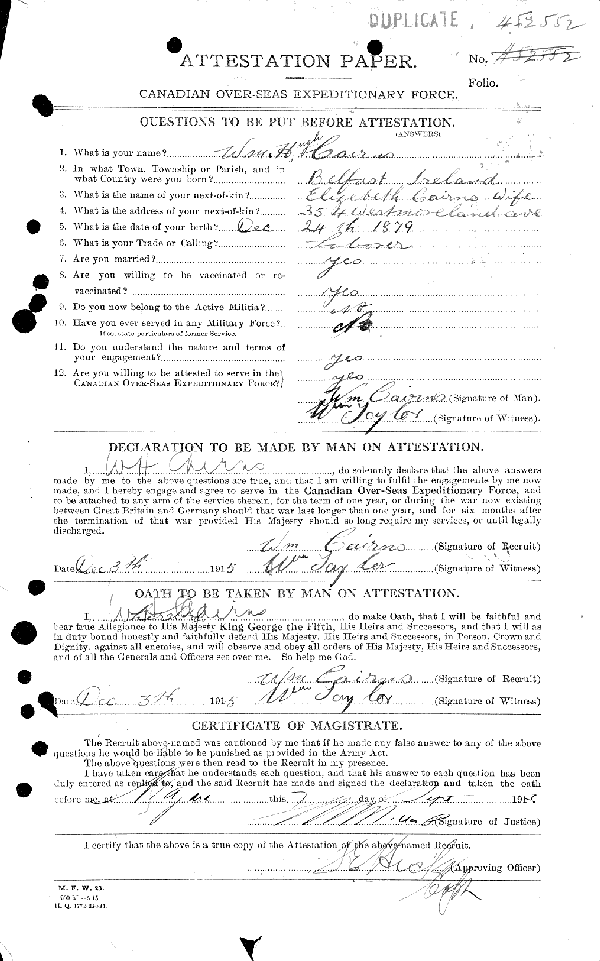 DUPLICATE. 452552
ATTESTATION PAPER. No. 452552
Folio.
CANADIAN OVER-SEAS EXPEDITIONARY FORCE.
QUESTIONS TO BE PUT BEFORE ATTESTATION.
(ANSWERS)
1. What is your name? Wm. Hugh Cairns
2. In what Town, Township or Parish, and in
what Country were you born? Belfast Ireland
3. What is the name of your next-of-kin? Elizebeth Cairns Wife
4. What is the address of your next-of-kin? 354 Westmoreland ave
5. What is the date of your birth? Dec 24th 1879
6. What is your Trade or Calling? Laborer
7. Are you married? yes
8. Are you willing to be vaccinated or re-
vaccinated? yes
9. Do you now belong to the Active Militia? No
10. Have you ever served in any Military Force? No
If so, state particulars of former Service.
11. Do you understand the nature and terms of
your engagement? yes
12. Are you willing to be attested to serve in the
CANADIAN OVER-SEAS EXPEDITIONARY FORCE? yes
Wm Cairns (Signature of Man).
Wm Taylor (Signature of Witness).
DECLARATION TO BE MADE BY MAN ON ATTESTATION.
I, W H Cairns, do solemnly declare that the above answers
made by me to the above questions are true, and that I am willing to fulfil the engagements by me now
made, and I hereby engage and agree to serve in the Canadian Over-Seas Expeditionary Force, and
to be attached to any arm of the service therein, for the term of one year, or during the war now existing
between Great Britain and Germany should that war last longer than one year, and for six months after
the termination of that war provided His Majesty should so long require my services, or until legally
discharged.
Wm Cairns (Signature of Recruit)
Date Dec 3th 1915 Wm Taylor (Signature of Witness)
OATH TO BE TAKEN BY MAN ON ATTESTATION.
I, W H Cairns, do make Oath, that I will be faithful and
bear true Allegiance to His Majesty King George the Fifth, His Heirs and Successors, and that I will as
in duty bound honestly and faithfully defend His Majesty, His Heirs and Successors, in Person, Crown and
Dignity, against all enemies, and will observe and obey all orders of His Majesty, His Heirs and Successors,
and of all the Generals and Officers set over me. So help me God.
Wm Cairns (Signature of Recruit)
Date Dec 3th 1915 Wm Taylor (Signature of Witness)
CERTIFICATE OF MAGISTRATE.
The Recruit above-named was cautioned by me that if he made any false answer to any of the above
questions he would be liable to be punished as provided in the Army Act.
The above questions were then read to the Recruit in my presence.
I have taken care that he understands each question, and that his answer to each question has been
duly entered as replied to, and the said Recruit has made and signed the declaration and taken the oath
before me, at this 7 day of 1915
(Signature of Justice)
I certify that the above is a true copy of the Attestation of the above-named Recruit.
(Approving Officer)
M. F. W. 23.